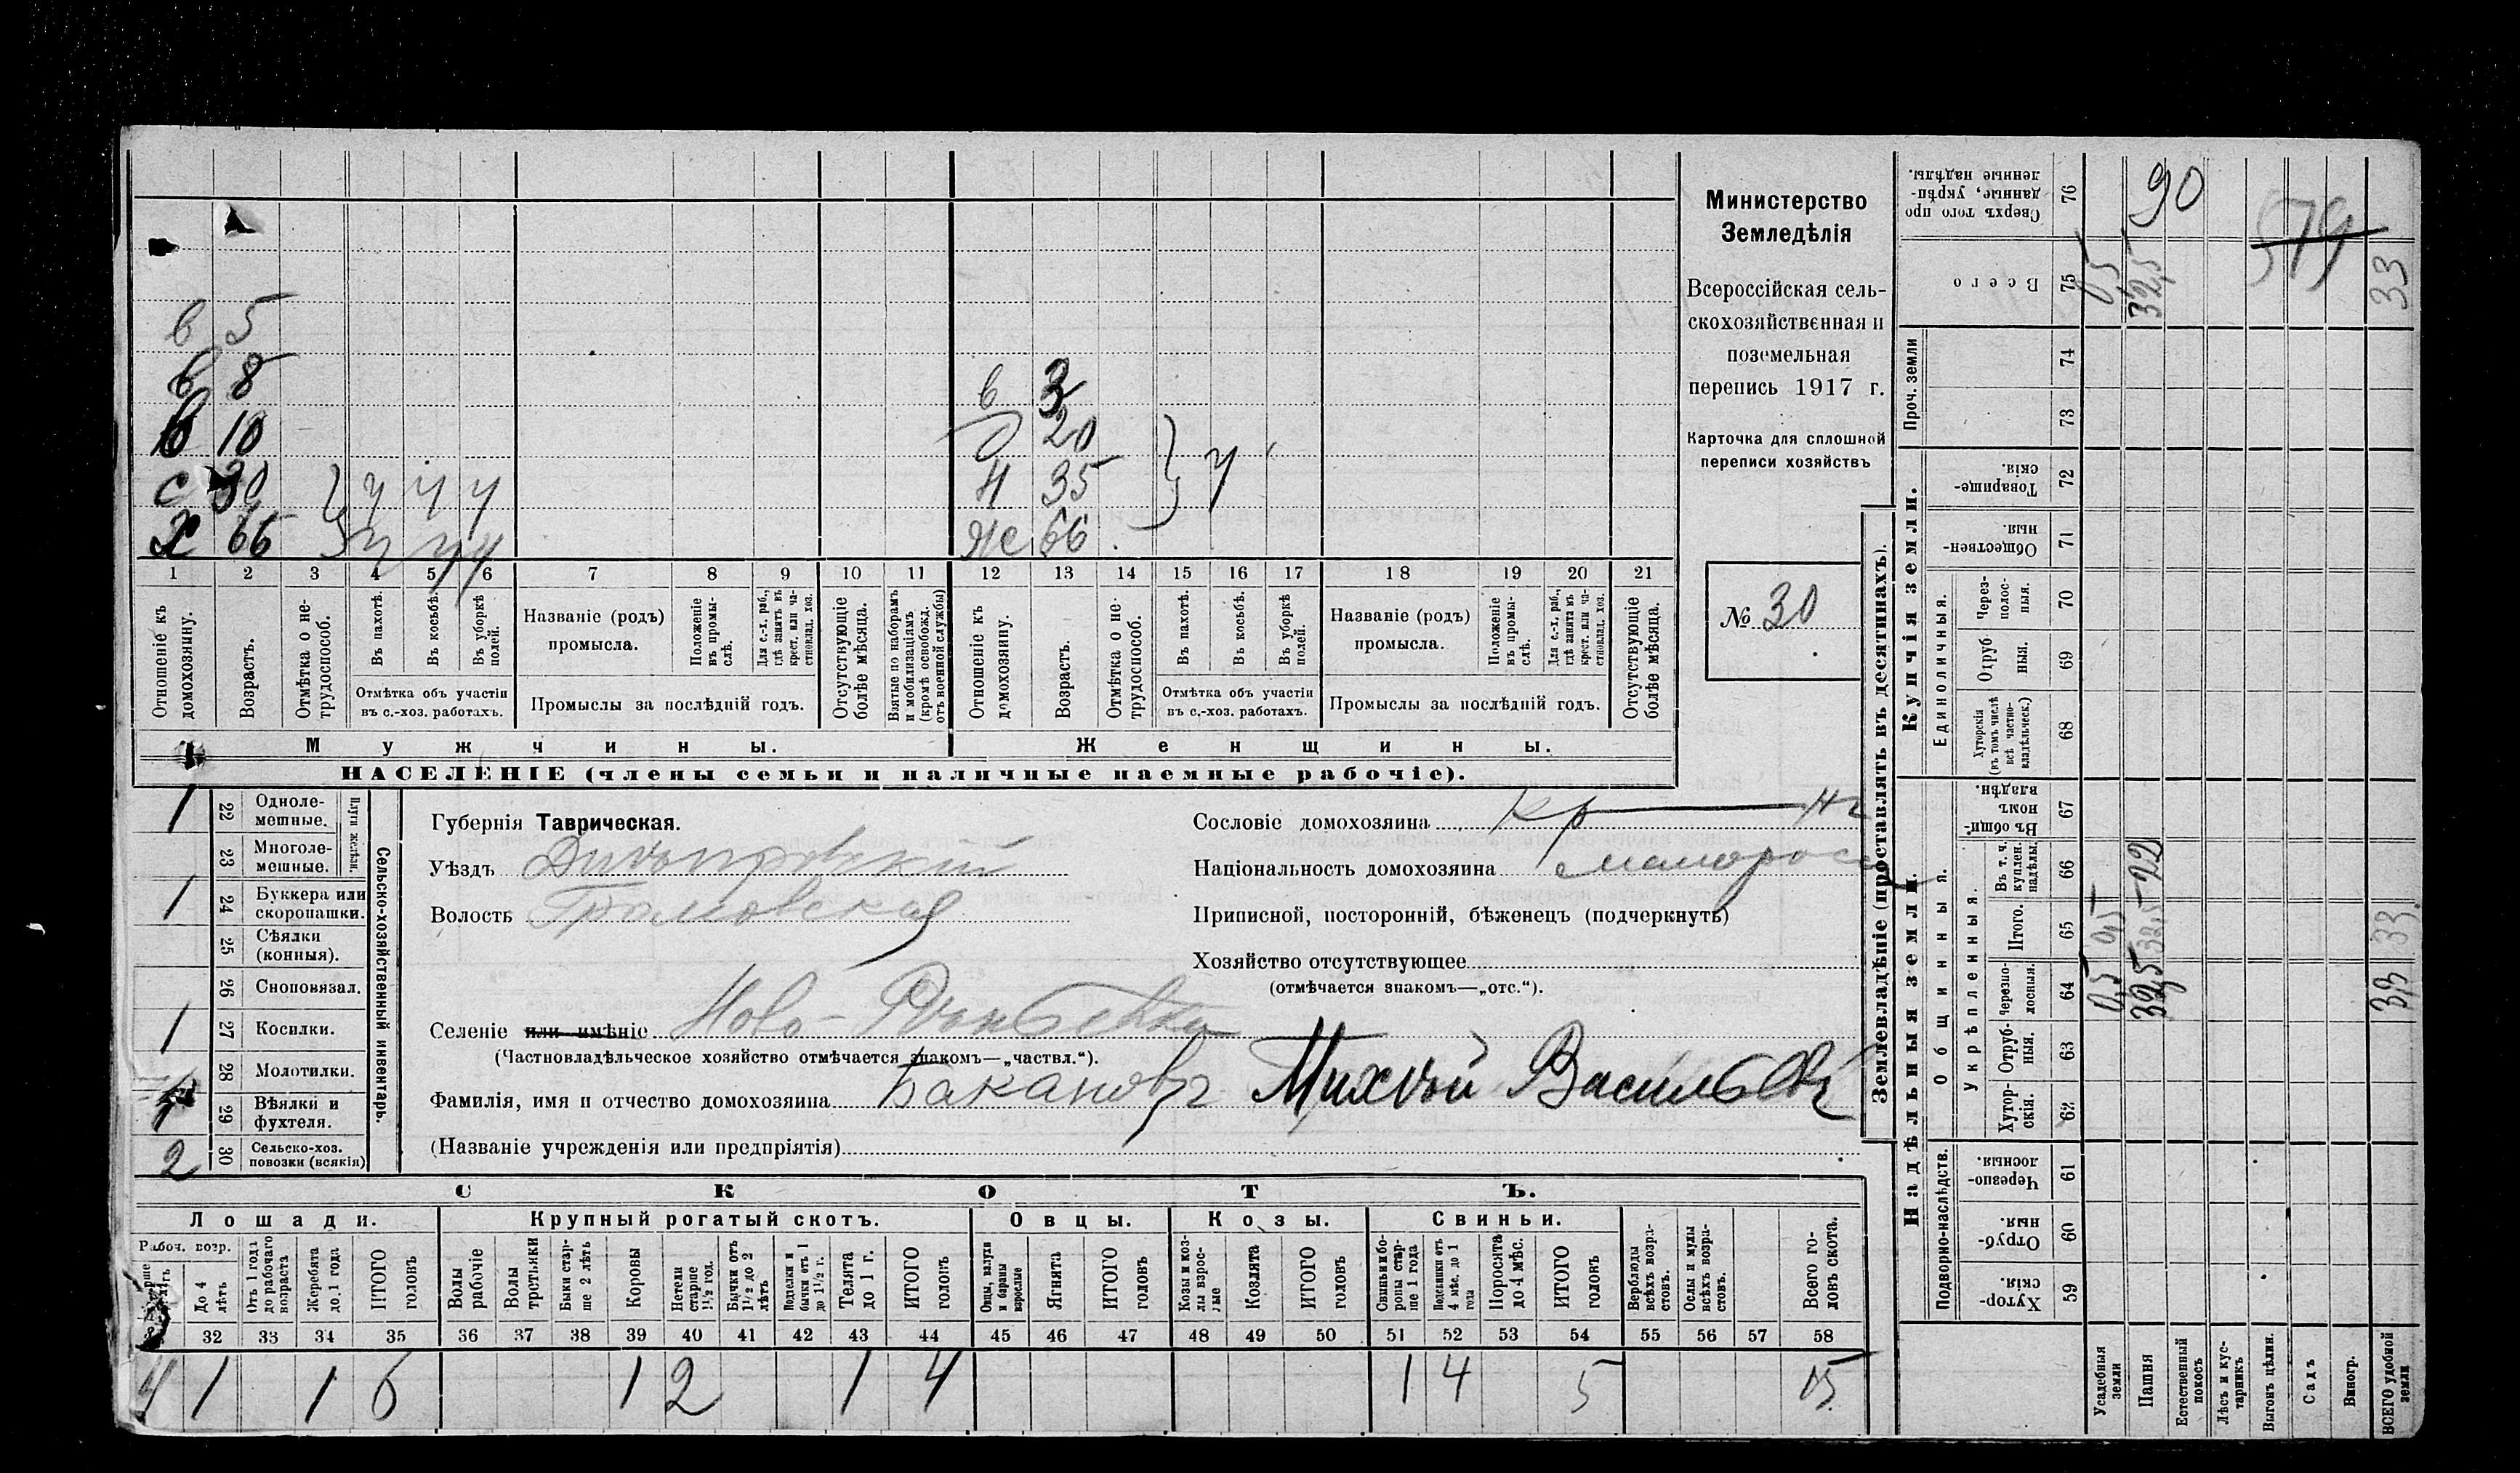 Министерство
Земледѣлія
Всероссійская сель-
скохозяйственная и
поземельная
перепись 1917 г.
Карточка для сплошной
переписи хозяйствъ
№ 30
в 5
в 8
в 3
в 10
20
с 30 } ч ч ч
Н 35 } ч
х 66 } ч ч ч
же 66
1 2 3 4 5 6 7 8 9 10 11 12 13 14 15 16 17 18 19 20 21
Отношеніе къ домохозяину.
Возрастъ.
Отмѣтка о не-трудоспособ.
Въ пахотѣ.
Въ косьбѣ.
Въ уборкѣ полей.
Отмѣтка объ участіи
въ с.-хоз. работахъ.
Названіе (родъ)
промысла.
Положеніе въ промы-слѣ.
Для с.-х. раб., гдѣ занятъ въ крест. или ча-стновлад. хоз.
Промыслы за послѣдній годъ.
Отсутствующіе болѣе мѣсяца.
Взятые по наборамъ и мобилизаціямъ (кромѣ освобожд. отъ военной службы)
Отношеніе къ домохозяину.
Возрастъ.
Отмѣтка о не-трудоспособ.
Въ пахотѣ.
Въ косьбѣ.
Въ уборкѣ полей.
Отмѣтка объ участіи
въ с.-хоз. работахъ.
Названіе (родъ)
промысла.
Положеніе въ промы-слѣ.
Для с.-х. раб., гдѣ занятъ въ крест. или ча-стновлад. хоз.
Промыслы за послѣдній годъ.
Отсутствующіе болѣе мѣсяца.
Мужчины.
Женщины.
НАСЕЛЕНІЕ (члены семьи и наличные наемные рабочіе).
Сельско-хозяйственный инвентарь.
Плуги желѣзн.
1 22 Одноле-мешные.
23 Многоле-мешные.
1 24 Буккера или скоропашки.
25 Сѣялки (конныя).
26 Сноповязал.
1 27 Косилки.
28 Молотилки.
29 Вѣялки и фухтеля.
2 30 Сельско-хоз. повозки (всякія)
Губернія Таврическая.
Уѣздъ Днѣпровскій
Волость Громовская
Селеніе или имѣніе Ново-
(Частновладѣльческое хозяйство отмѣчается знакомъ—„частвл.“).
Фамилія, имя и отчество домохозяина Бакановъ Михѣй Васильев
(Названіе учрежденія или предпріятія)
Сословіе домохозяина кр-нъ
Національность домохозяина малоросс
Приписной, посторонній, бѣженецъ (подчеркнуть)
Хозяйство отсутствующее
(отмѣчается знакомъ—„отс.“).
СКОТЪ.
Лошади.
Крупный рогатый скотъ.
Овцы.
Козы.
Свиньи.
Рабоч. возр.
До 4 лѣтъ
Отъ 1 года до рабочаго возраста
Жеребята до 1 года
ИТОГО головъ
Волы рабочіе
Волы третьяки
Быки стар-ше 2 лѣтъ
Коровы
Нетели старше 1½ год.
Бычки отъ 1½ до 2 лѣтъ
Подтелки и бычки отъ 1 до 1½ г.
Телята до 1 г.
ИТОГО головъ
Овцы, валухи и бараны взрослые
Ягнята
ИТОГО головъ
Козы и коз-лы взрос-лые
Козлята
ИТОГО головъ
Свиньи и бо-ровы стар-ше 1 года
Подсвинки отъ 4 мѣс. до 1 года
Поросята до 4 мѣс.
ИТОГО головъ
Верблюды всѣхъ возра-стовъ.
Ослы и мулы всѣхъ возра-стовъ.
Всего го-ловъ скота.
32 33 34 35 36 37 38 39 40 41 42 43 44 45 46 47 48 49 50 51 52 53 54 55 56 57 58
4 1 1 6 1 2 1 4 1 4 5 15
Землевладѣніе (проставлять въ десятинахъ).
Надѣльныя земли.
Купчія земли.
Проч. земли
Подворно-наслѣдств.
Общинныя.
Укрѣпленныя.
Единоличныя.
Сверхъ того про-данные, укрѣп-ленные надѣлы. 76 90
Всего 75 0,5 32,5 33
579
74
73
Товарище-скія. 72
Обществен-ныя. 71
Через-полос-ныя. 70
Отруб-ныя. 69
Хуторскія (въ томъ числѣ всѣ частно-владѣльческ.) 68
Въ общи-номъ владѣн. 67
Въ т. ч. куплен. надѣлы. 66 22
Итого. 65 0,5 32,5 33
Черезпо-лосныя. 64 0,5 32,5 33
Отруб-ныя. 63
Хутор-скія. 62
Черезпо-лосныя. 61
Отруб-ныя. 60
Хутор-скія. 59
Усадебныя земли
Пашня
Естественный покосъ
Лѣсъ и кус-тарникъ
Выгонъ цѣлин.
Садъ
Виногр.
ВСЕГО удобной земли